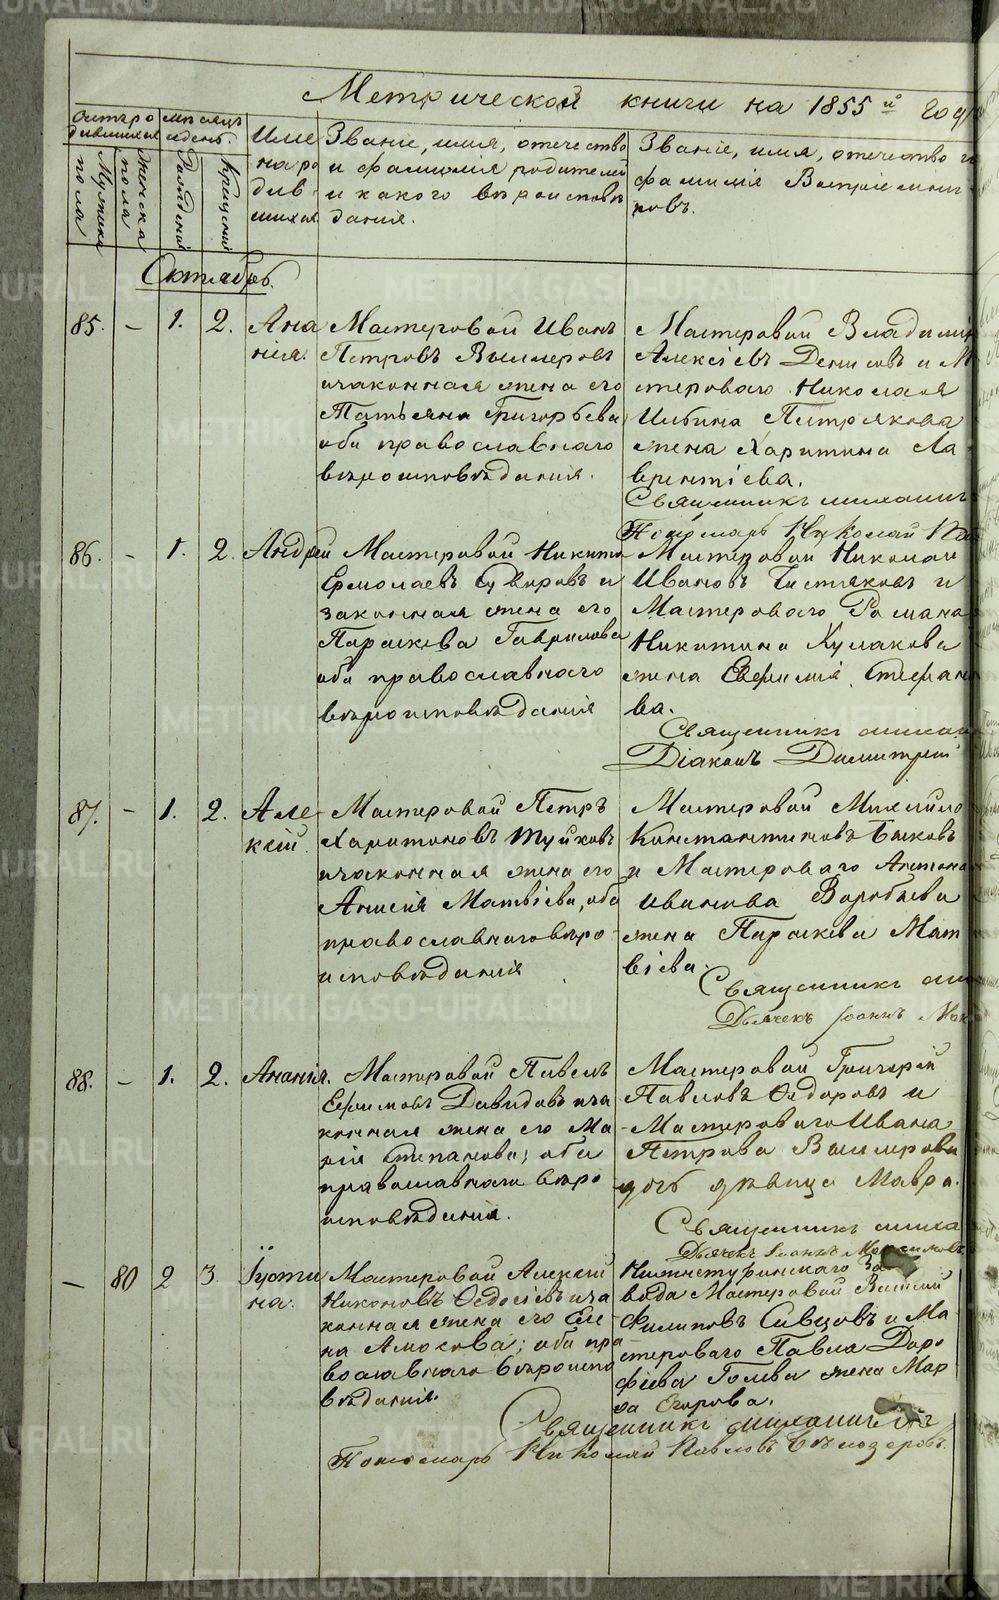 METRIKI.GASO-URAL.RU
Метрической книги на 1855й год
Счетъ родившихся
Мужеска пола
Женска пола
Месяцъ и день
Рожденія
Крещенія
Имена родившихся
Званіе, имя, отечество
и фамилія родителей
и какого вероисповѣ
данія.
Званіе, имя, отечество и
фамилія Воспріемни
ковъ.
Октябрь.
85. — 1. 2. Ана
нія.
Мастеровой Иванъ
Петровъ
изаконная жена его
Татьяна Григорьева
оба православнаго
вероисповѣданія.
Мастеровой Владимі
Алексіевъ Денисовъ и М
стероваго Николая
Ильина Пестрякова
жена Харитина Ла
врентіева.
Священникъ
Пономарь Николай
86. — 1. 2. Андрей
Мастеровой Никита
Ермолаевъ Суворовъ и
законная жена его
Параскева Гаврилова
оба православнаго
вероисповѣданія
Мастеровой Николай
Ивановъ Чистяковъ и
Мастероваго Романа
Никитина Кулакова
жена Евфимія Стефан
ва.
Священникъ
Діаконъ Димитрій
87. — 1. 2. Але
ксій.
Мастеровой Петръ
Харитоновъ
изаконная жена его
Анисія Матвіева, оба
православнаго веро
исповѣданія
Мастеровой Михайло
Константиновъ Быковъ
и Мастероваго Антона
Иванова Воробьева
жена Параскева Мат
віева.
Священникъ
Дьячекъ Іоаннъ Мак
88. — 1. 2. Ананія.
Мастеровой Павелъ
Ефимовъ Давидовъ иза
конная жена его Ма
рія Степанова; оба
православнаго веро
исповѣданія.
Мастеровой Григорій
Павловъ Ѳедоровъ и
Мастероваго Ивана
Петрова
дочь дѣвица Мавра.
Священникъ миха
Дьячекъ Іоаннъ Максимовъ
— 80 2 3. Іусти
на.
Мастеровой Алексій
Никоновъ Ѳедосіевъ иза
конная жена его Еле
на Амосова; оба пра
вославнаго вероиспо
вѣданія.
Нижнетуринскаго За
вода Мастеровой Василій
Филиповъ Сивцовъ и Ма
стероваго Павла Доро
фіева Голева жена Мар
ѳа Егорова.
Священникъ михаилъ
Пономарь Николай Павловъ